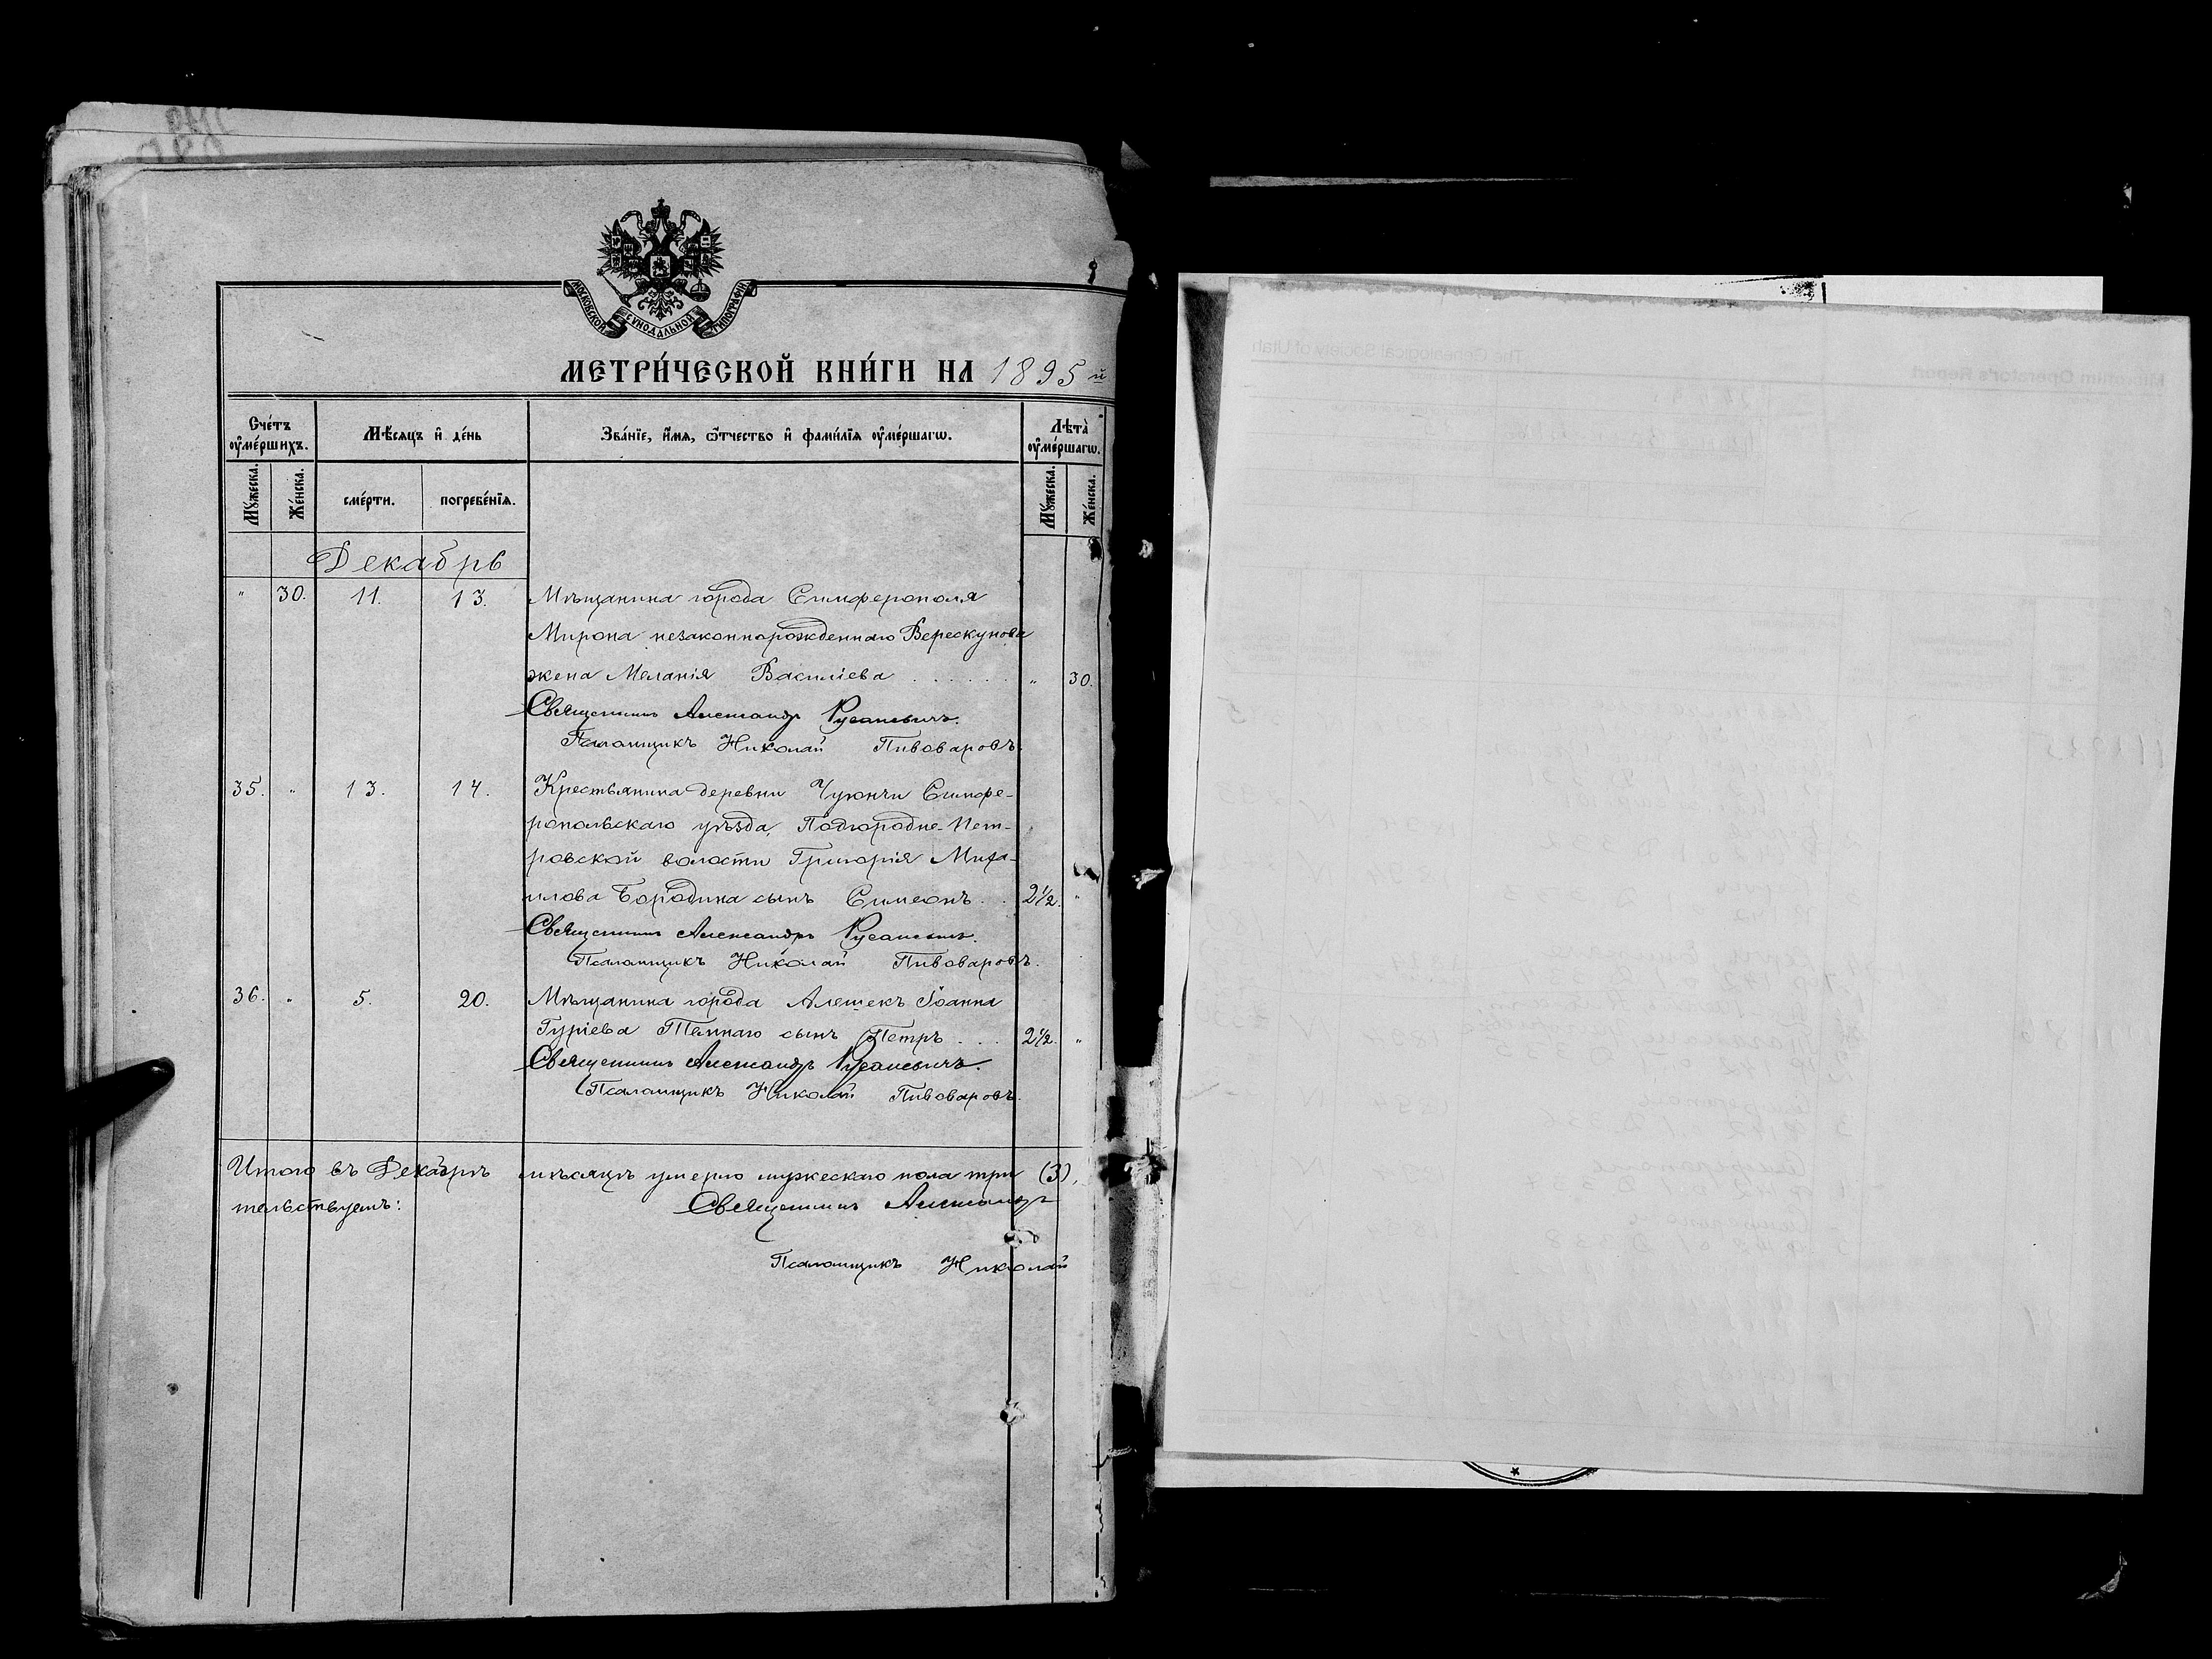 МОСКОВСКОЙ СѴНОДАЛЬНОЙ ТИПОГРАФІИ
МЕТРИ́ЧЕСКОЙ КНИ́ГИ НА 1895 й
Сче́тъ ᲂу҆ме́ршихъ.
Мѣ́сяцъ и҆ де́нь
Зва́нїе, и҆́мѧ, ѻ҆́тчество и҆ фами́лїѧ ᲂу҆ме́ршагѡ.
Лѣта̀ ᲂу҆ме́ршагѡ.
Мꙋ́жеска. Же́нска. сме́рти. погребе́нїѧ. Мꙋ́жеска. Же́нска.
Декабрь
" 30. 11. 13. Мѣщанина города Симферополя
Мирона незаконнорожденнаго Верескунова
жена Меланія Василіева . . . . . . " 30.
Священникъ Александръ Русаневичъ.
Псаломщикъ Николай Пивоваровъ.
35. " 13. 14. Крестьянина деревни Чуюнчи Симфе-
ропольскаго уѣзда, Подгородне-Пет-
ровской волости Григорія Миха-
илова Бородина сынъ Симеонъ . . 2½. "
Священникъ Александръ Русаневичъ.
Псаломщикъ Николай Пивоваровъ.
36. " 5. 20. Мѣщанина города Алешекъ Іоанна
Гуріева Темнаго сынъ Петръ . . . 2½. "
Священникъ Александръ Русаневичъ.
Псаломщикъ Николай Пивоваровъ.
Итого въ Декабрѣ мѣсяцѣ умерло мужескаго пола три (3),
тельствуемъ: Священникъ Александръ
Псаломщикъ Николай